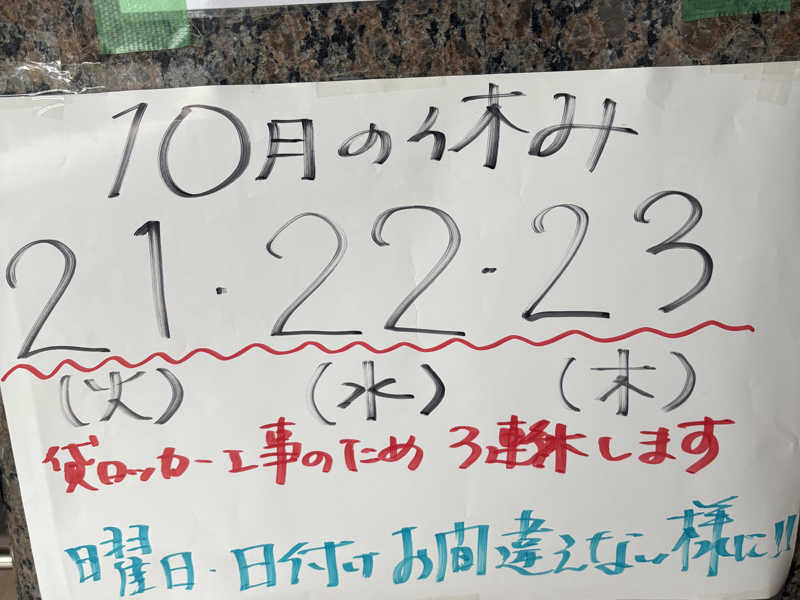 10月の休み
21・22・23
(火) (水) (木)
貸ロッカー工事のため 3連休します
曜日・日付けお間違えない様に!!